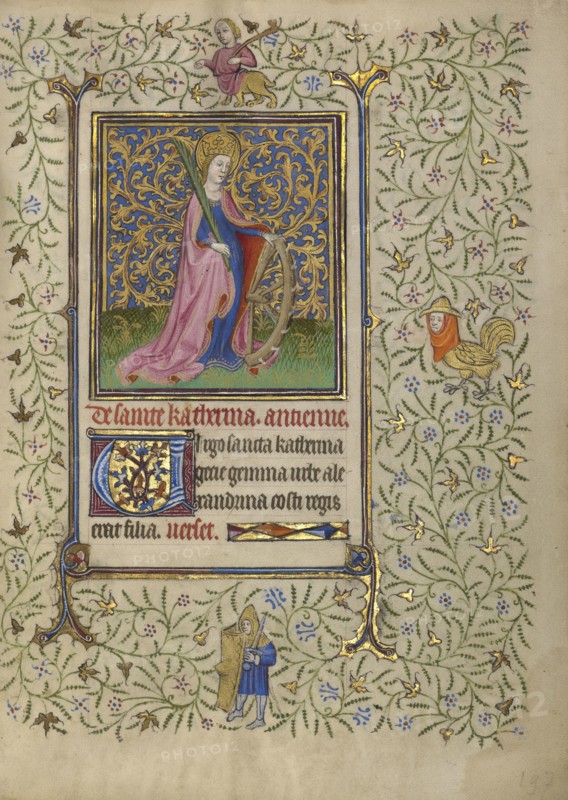 De sainte katherina. antienne.
Virgo sancta katherina
grecie gemma urbe ale
xandrina costi regis
erat filia. verset.
PHOTO12
197